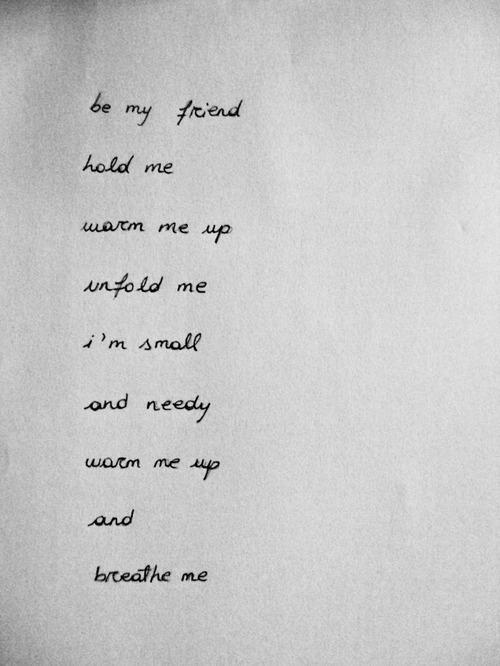 be my friend
hold me
warm me up
unfold me
i'm small
and needy
warm me up
and
breathe me